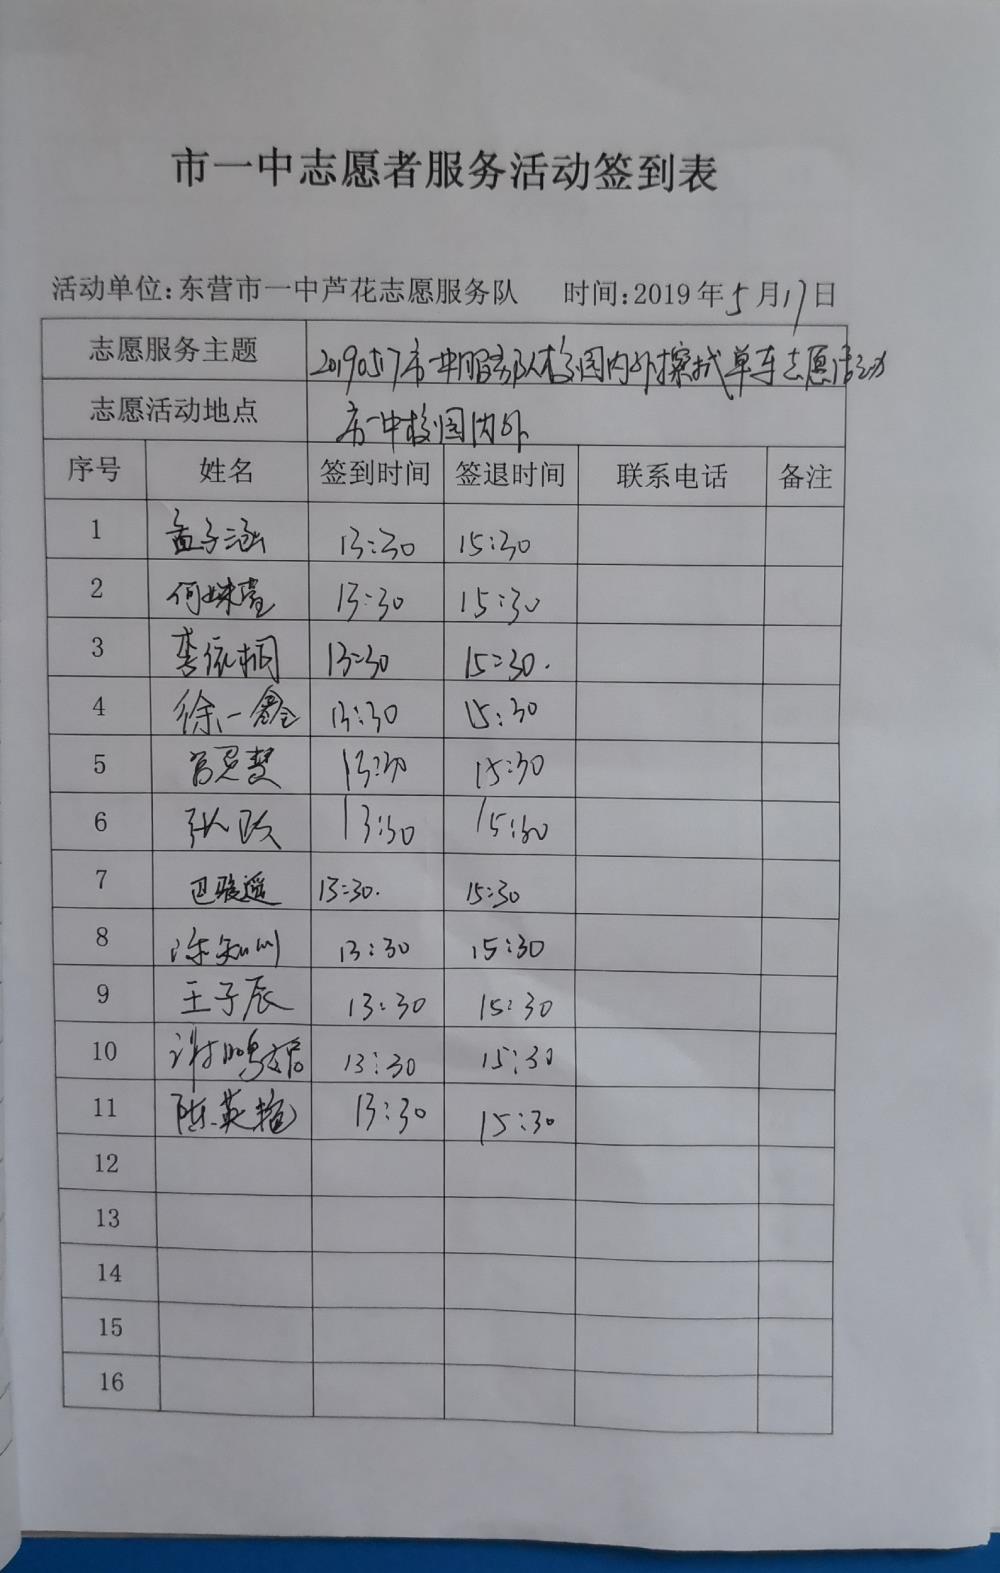 市一中志愿者服务活动签到表
活动单位:东营市一中芦花志愿服务队 时间:2019年5月17日
志愿服务主题 20190517市一中服务队校园内外擦拭单车志愿活动
志愿活动地点 市一中校园内外
序号 姓名 签到时间 签退时间 联系电话 备注
1 孟子涵 13:30 15:30
2 何姝萱 13:30 15:30
3 李依桐 13:30 15:30.
4 徐一鑫 13:30 15:30
5 13:30 15:30
6 张政 13:30 15:30
7 巴骏遥 13:30. 15:30
8 陈知川 13:30 15:30
9 王子辰 13:30 15:30
10 谢鹏 13:30 15:30
11 陈英艳 13:30 15:30
12
13
14
15
16